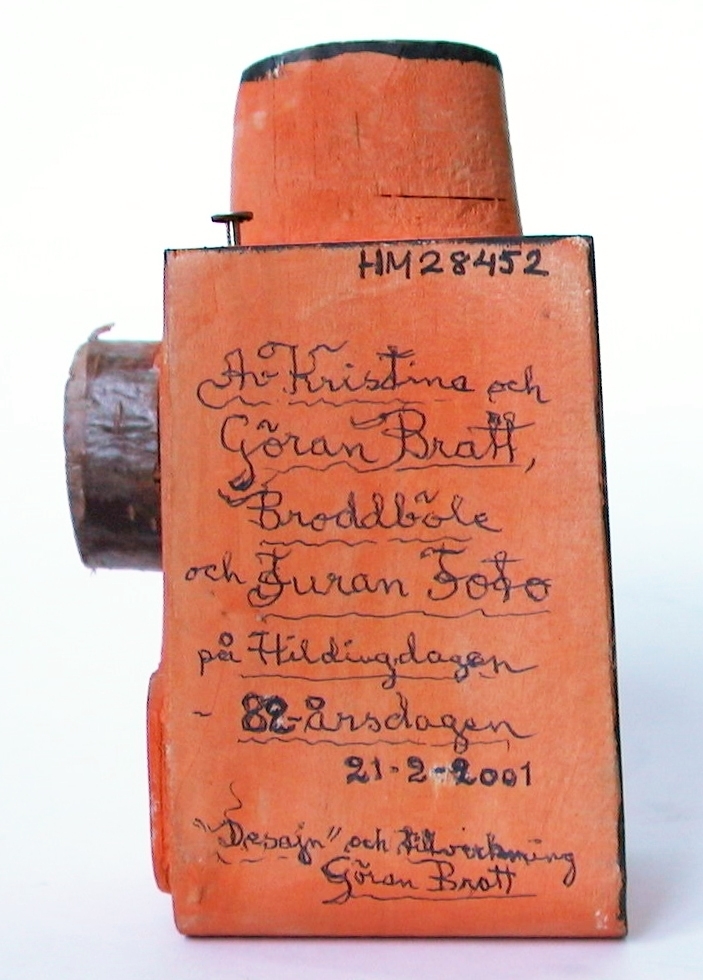 HM28452
Av Kristina och
Göran Bratt,
Broddböle
och Furan Foto
på Hildingdagen
- 82-årsdagen
21-2-2001
"Desajn" och tillverkning
Göran Bratt